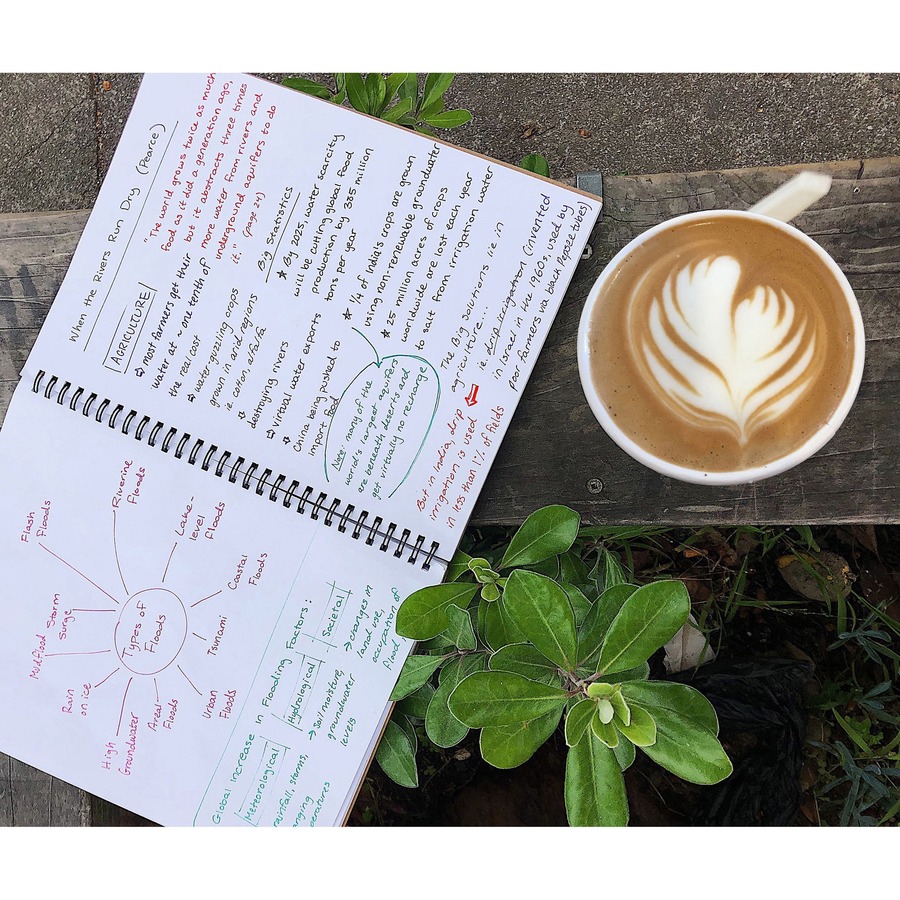 When the Rivers Run Dry (Pearce)
"The world grows twice as much
food as it did a generation ago,
but it abstracts three times
more water from rivers and
underground aquifers to do
it." (page 24)
AGRICULTURE
most farmers get their
water at ~ one tenth of
the real cost
water-guzzling crops
grown in arid regions
ie. cotton, alfalfa
destroying rivers
Virtual water exports
China being pushed to
import food
Big Statistics
★ By 2025, water scarcity
will be cutting global food
production by 385 million
tons per year
★ 1/4 of India's crops are grown
using non-renewable groundwater
★ 25 million acres of crops
worldwide are lost each year
to salt from irrigation water
Note: many of the
world's largest aquifers
are beneath deserts and
get virtually no recharge
The Big Solutions lie in
agriculture...
ie. drip irrigation (invented
in Israel in the 1960s, used by
poor farmers via black Pepsee tubes)
But in India, drip
irrigation is used
in less than 1% of fields
Types of
Floods
Flash
Floods
Riverine
Floods
Lake-
level
floods
Coastal
Floods
Tsunami
Urban
Floods
Areal
Floods
High
Groundwater
Rain
on ice
Mudflood
Storm
Surge
Global increase in Flooding Factors:
Meteorological
rainfall, storms,
Hydrological
→ soil moisture,
groundwater
levels
Societal
→ changes in
land use,
occupation of
flood